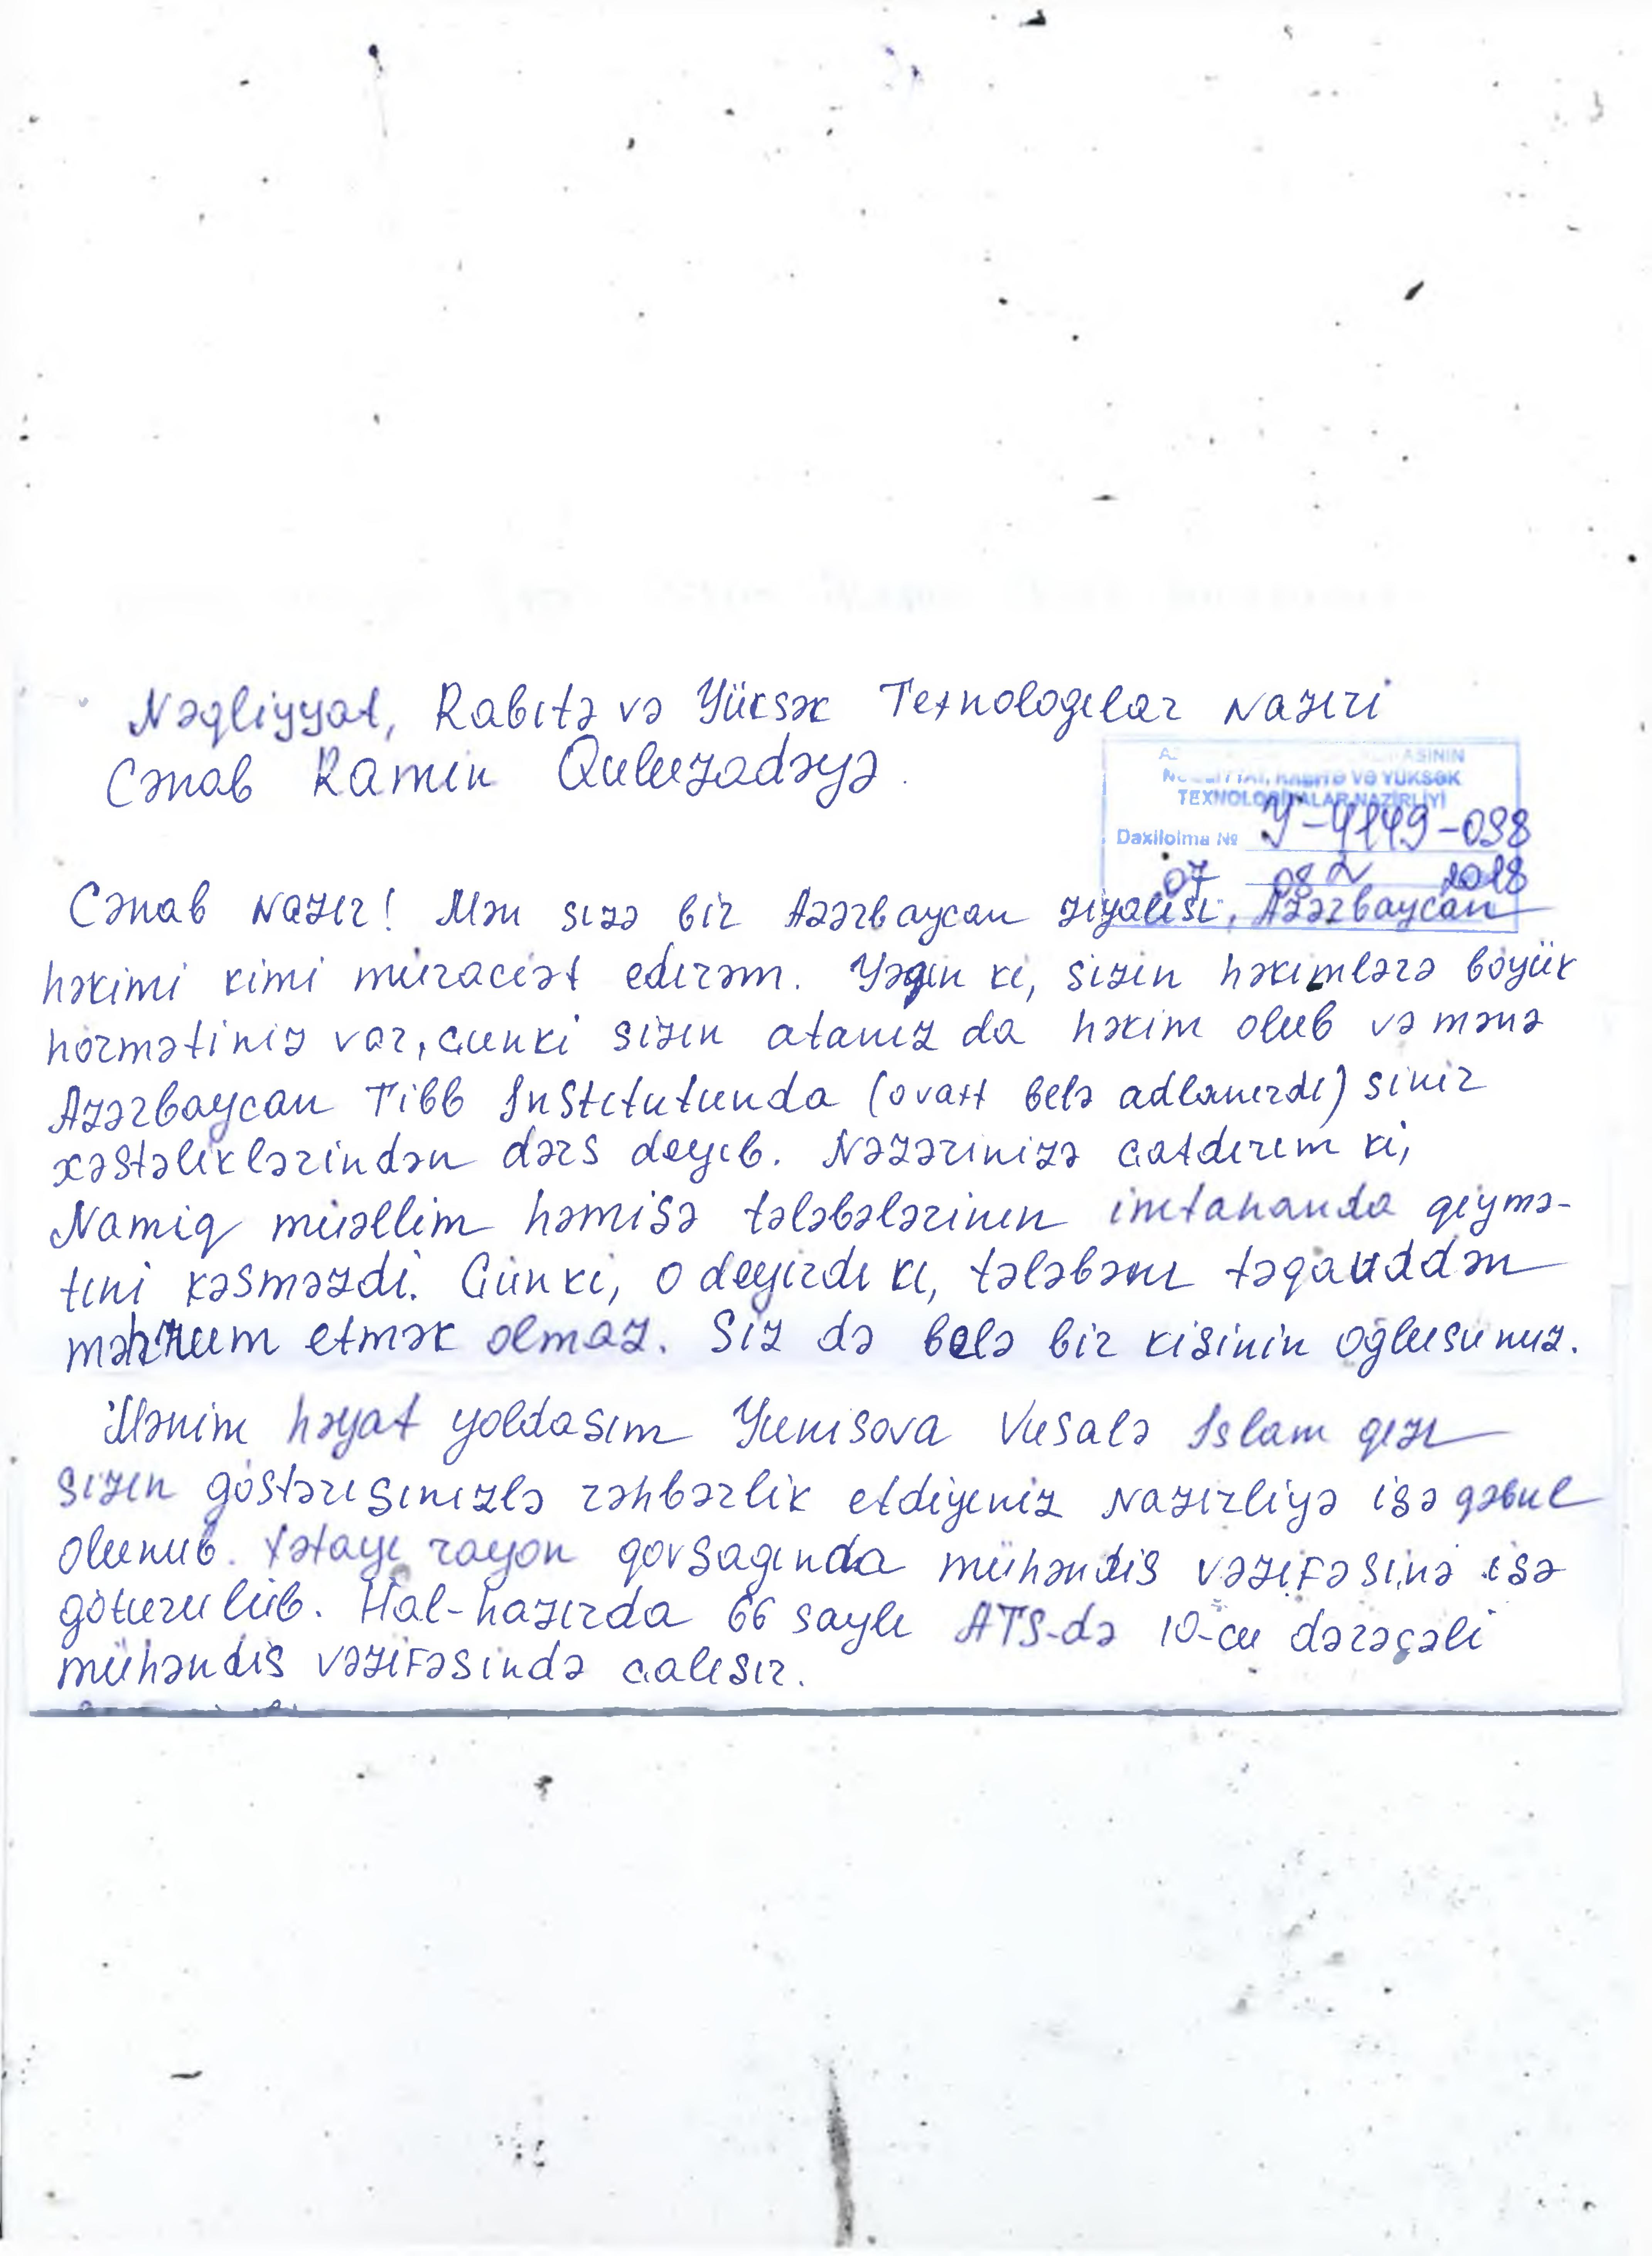 Nəqliyyat, Rabıtə və Yüksək Texnologılar Nazıri
Cənab Ramin Quluzadəyə.
ASININ
RABİTƏ VƏ YÜKSƏK
TEXNOLOGİYALAR NAZİRLİYİ
Daxilolma № Y-4149-098
07 08 2 2018
Cənab Nazır! Mən sızə bir Azərbaycan zıyalısı, Azərbaycan
həkimi kimi müraciət edırəm. Yəqın ki, sizin həkımlərə böyük
hörmətiniz var, çünki sizin atanız da həkim olub və mənə
Azərbaycan Tibb Instıtutunda (o vaxt belə adlanırdı) sinir
xəstəlıklərindən dərs deyıb. Nəzərinizə çatdırım ki,
Namiq müəllim həmişə tələbələrinın imtahanda qiymə-
tıni kəsməzdi. Çünki, o deyırdı kı, tələbəni təqaüddən
məhrum etmək olmaz. Siz də belə bir kişinin oğlusunuz.
Mənim həyat yoldaşım Yunisova Vüsalə Islam qızı
sızın göstərışınızlə rəhbərlik etdiyiniz Nazırliyə işə qəbul
olunub. Xətayı rayon qovşağında mühəndis vəzıfəsınə işə
götürülüb. Hal-hazırda 66 saylı ATS-də 10-cu dərəcəli
mühəndıs vəzıfəsındə çalışır.